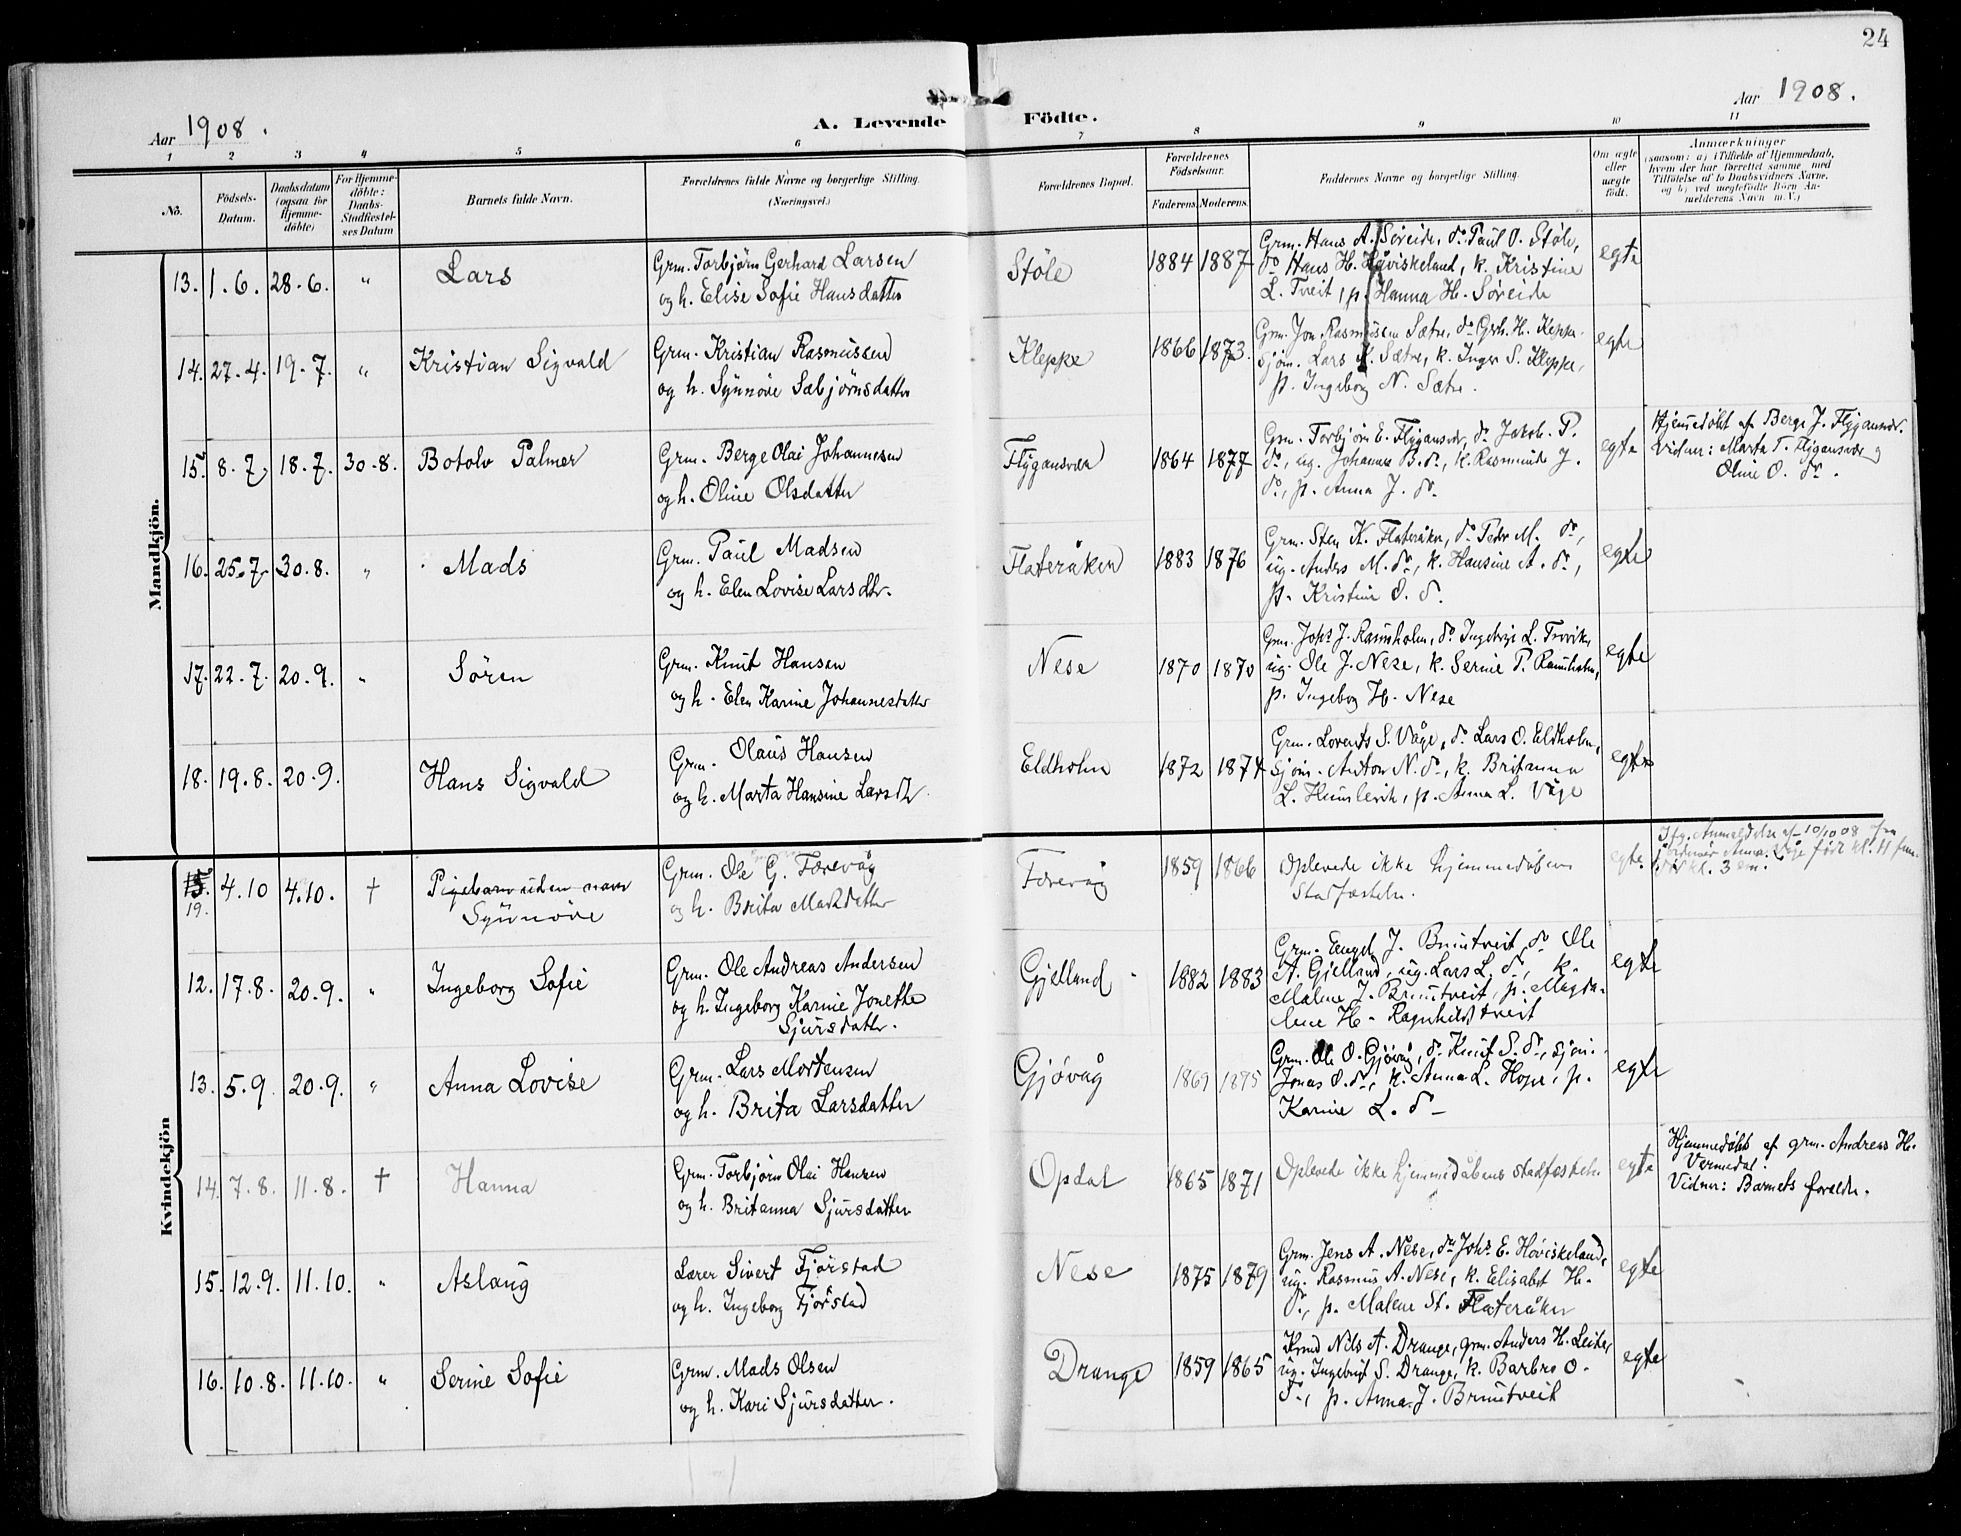 24
Aar 1908.
Aar 1908.
A. Levende Födte.
1 2 3 4 5 6 7 8 9 10 11
No.
Födsels-
Datum.
Daabsdatum
(ogsaa for
Hjemme-
döbte)
For Hjemme-
döbte:
Daabs-
Stadfæstel-
ses Datum
Barnets fulde Navn.
Forældrenes fulde Navne og borgerlige Stilling.
(Næringsvei.)
Forældrenes Bopæl.
Forældrenes
Födselsaar.
Faderens. Moderens.
Faddernes Navne og borgerlige Stilling.
Om ægte
eller
uægte
födt.
Anmærkninger
(saasom: a) i Tilfælde af Hjemmedaab,
hvem der har forrettet samme, med
Tilföielse af to Daabsvidners Navne,
og b) ved uægtefödte Börn An-
melderens Navn m.V.)
Mandkjön.
13. 1.6. 28.6. " Lars
Grm. Torbjørn Gerhard Larsen
og h. Elise Sofie Hansdatter
Støle 1884 1887
Grm. Hans A. Søreide, do Paul O. Støle,
do Hans H. Høviskeland, k. Kristine
L. Tveit, p. Hanna H. Søreide
egte
14. 27.4. 19.7. " Kristian Sigvald
Grm. Kristian Rasmussen
og h. Synnøve Sæbjørnsdatter
Kleppe 1866 1873.
Grm. Jon Rasmussen Sætre, do Gsch. H. Kleppe.
Sjøm. Lars K. Sætre, k. Inger S. Kleppe,
p. Ingeborg N. Sætre.
egte
15. 8.7 18.7. 30.8. Botolv Palmer
Grm. Berge Olai Johannesen
og h. Oline Olsdatter
Flygansvær 1864 1877
Grm. Torbjørn E. Flygansvær, do Jakob P.
do, ug. Johannes B. do, k. Rasmunde J.
do, p. Anna J. do.
egte
Hjemmedøbt af Berge J. Flygansvær.
Vidner: Marta T. Flygansvær og
Oline O. do.
16. 25.7. 30.8. " Mads
Grm. Paul Madsen
og h. Elen Lovise Larsdtr.
Flateråken 1883 1876
Grm. Sten K. Flateråker, do Peder M. do,
ug. Anders M. do, k. Hansine A. do,
p. Kristine O. do.
egte
17. 22.7. 20.9. " Sören
Grm. Knut Hansen
og h. Elen Karine Johannesdatter
Nese 1870 1870
Grm. Johs J. Ramsholm, do Ingebrigt L. Trovik,
ug. Ole J. Nese, k. Serine P. Ramsholm,
p. Ingeborg H. Nese
egte
18. 19.8. 20.9. Hans Sigvald
Grm. Olaus Hansen
og h. Marta Hansine Larsdtr.
Eldholm 1872 1874
Grm. Lorents S. Våge, do Lars O. Eldholm,
sjøm. Anton N. do, k. Britanna
L. Humlevik, p. Anna L. Våge
egte
Kvindekjön
19. 4.10 4.10. † Pigebarn uden navn
Synnøve
Grm. Ole G. Forevåg
og h. Brita Marksdatter
Forevåg 1859 1866
Oplevede ikke hjemmedåbens
Stadfæstelse.
egte.
Ifg. Anmeldelse af 10/10 08 fra
jordmor Anna Våge født kl. 11 fm.
død kl. 3 em.
12. 17.8. 20.9. " Ingeborg Sofie
Grm. Ole Andreas Andersen
og h. Ingeborg Karine Jonette
Sjursdatter.
Gjelland 1882 1883
Grm. Engel J. Bruntveit, do Ole
A. Gjelland, ug. Lars L. do, k.
Malene J. Bruntveit, p. Magda-
lene H. Ragnhildstveit
egte
13. 5.9. 20.9. " Anna Lovise
Grm. Lars Mortensen
og h. Brita Larsdatter
Gjøvåg 1869 1875
Grm. Ole O. Gjøvåg, do Knut S. do, sjøm.
Jonas O. do, k. Anna L. Hope, p.
Karine L. do
egte
14. 7.8. 11.8. † Hanna
Grm. Torbjørn Olai Hansen
og h. Britanna Sjursdatter
Opdal 1865 1871
Oplevede ikke hjemmedåbens stadfæstelse
egte
Hjemmedøbt af grm. Andreas H.
Vermedal.
Vidner: Barnets foreldre.
15. 12.9. 11.10. " Aslaug
Lærer Sivert Fjørstad
og h. Ingeborg Fjørstad
Nese 1875 1879
Grm. Jens A. Nese, do Johs E. Høviskeland,
ug. Rasmus A. Nese, k. Elisabet H.
do, p. Malene St. Flateråker
egte
16. 10.8. 11.10. " Serine Sofie
Grm. Mads Olsen
og h. Kari Sjursdatter.
Drange 1859 1865
Krmd Nils A. Drange, grm. Anders H. Leite,
ug. Ingebrigt S. Drange, k. Barbro O.
do, p. Anna J. Bruntveit
egte